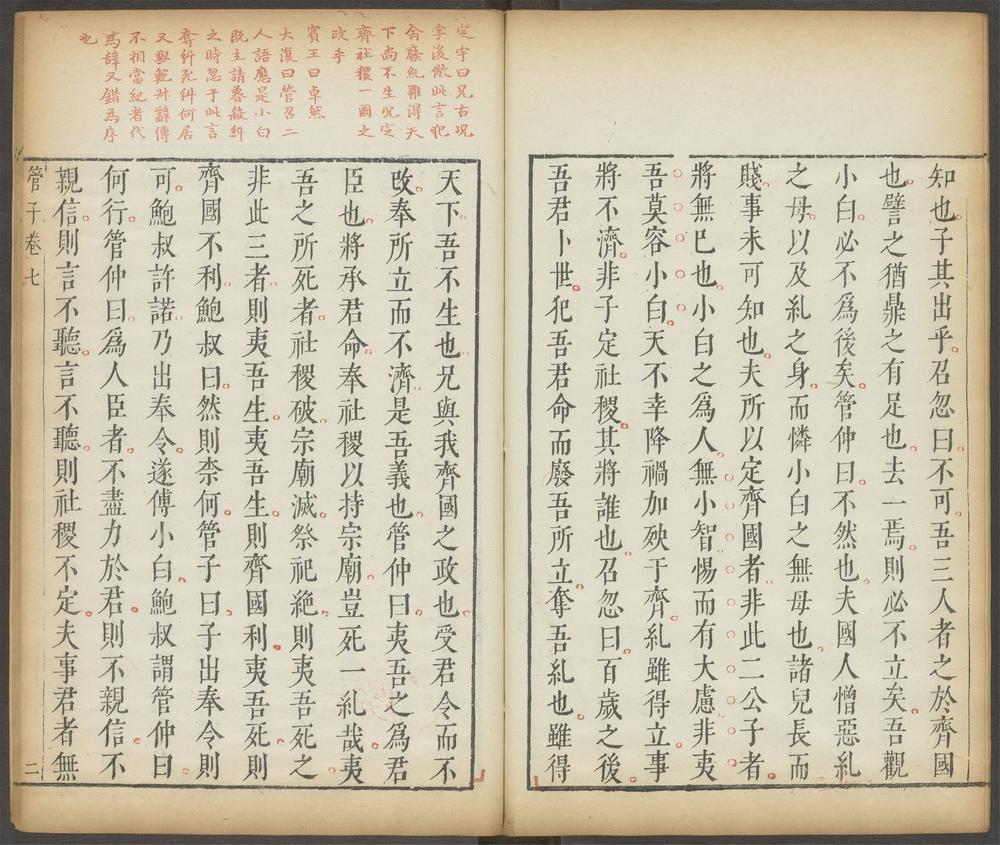 知也子其出乎召忽曰不可吾三人者之於齊國
也譬之猶鼎之有足也去一焉則必不立矣吾觀
小白必不爲後矣管仲曰不然也夫國人憎惡糺
之母以及糺之身而憐小白之無母也諸兒長而
賤事未可知也夫所以定齊國者非此二公子者
將無巳也小白之爲人無小智惕而有大慮非夷
吾莫容小白天不幸降禍加殃于齊糺雖得立事
將不濟非子定社稷其將誰也召忽曰百歲之後
吾君卜世犯吾君命而廢吾所立奪吾糺也雖得
定宇曰兄古况
字後倣此言犯
命廢糺雖得天
下尚不生况定
齊社稷一國之
政乎
賓王曰卓然
大復曰管召二
人語應是小白
既主請魯殺糾
之時忽于此言
奪糾死糾何居
又與鮑叔辭傅
不相當紀者代
爲辭又錯爲序
也
天下吾不生也兄與我齊國之政也受君令而不
改奉所立而不濟是吾義也管仲曰夷吾之爲君
臣也將承君命奉社稷以持宗廟豈死一糺哉夷
吾之所死者社稷破宗廟滅祭祀絶則夷吾死之
非此三者則夷吾生夷吾生則齊國利夷吾死則
齊國不利鮑叔曰然則柰何管子曰子出奉令則
可鮑叔許諾乃出奉令遂傅小白鮑叔謂管仲曰
何行管仲曰爲人臣者不盡力於君則不親信不
親信則言不聽言不聽則社稷不定夫事君者無
管子卷七
二